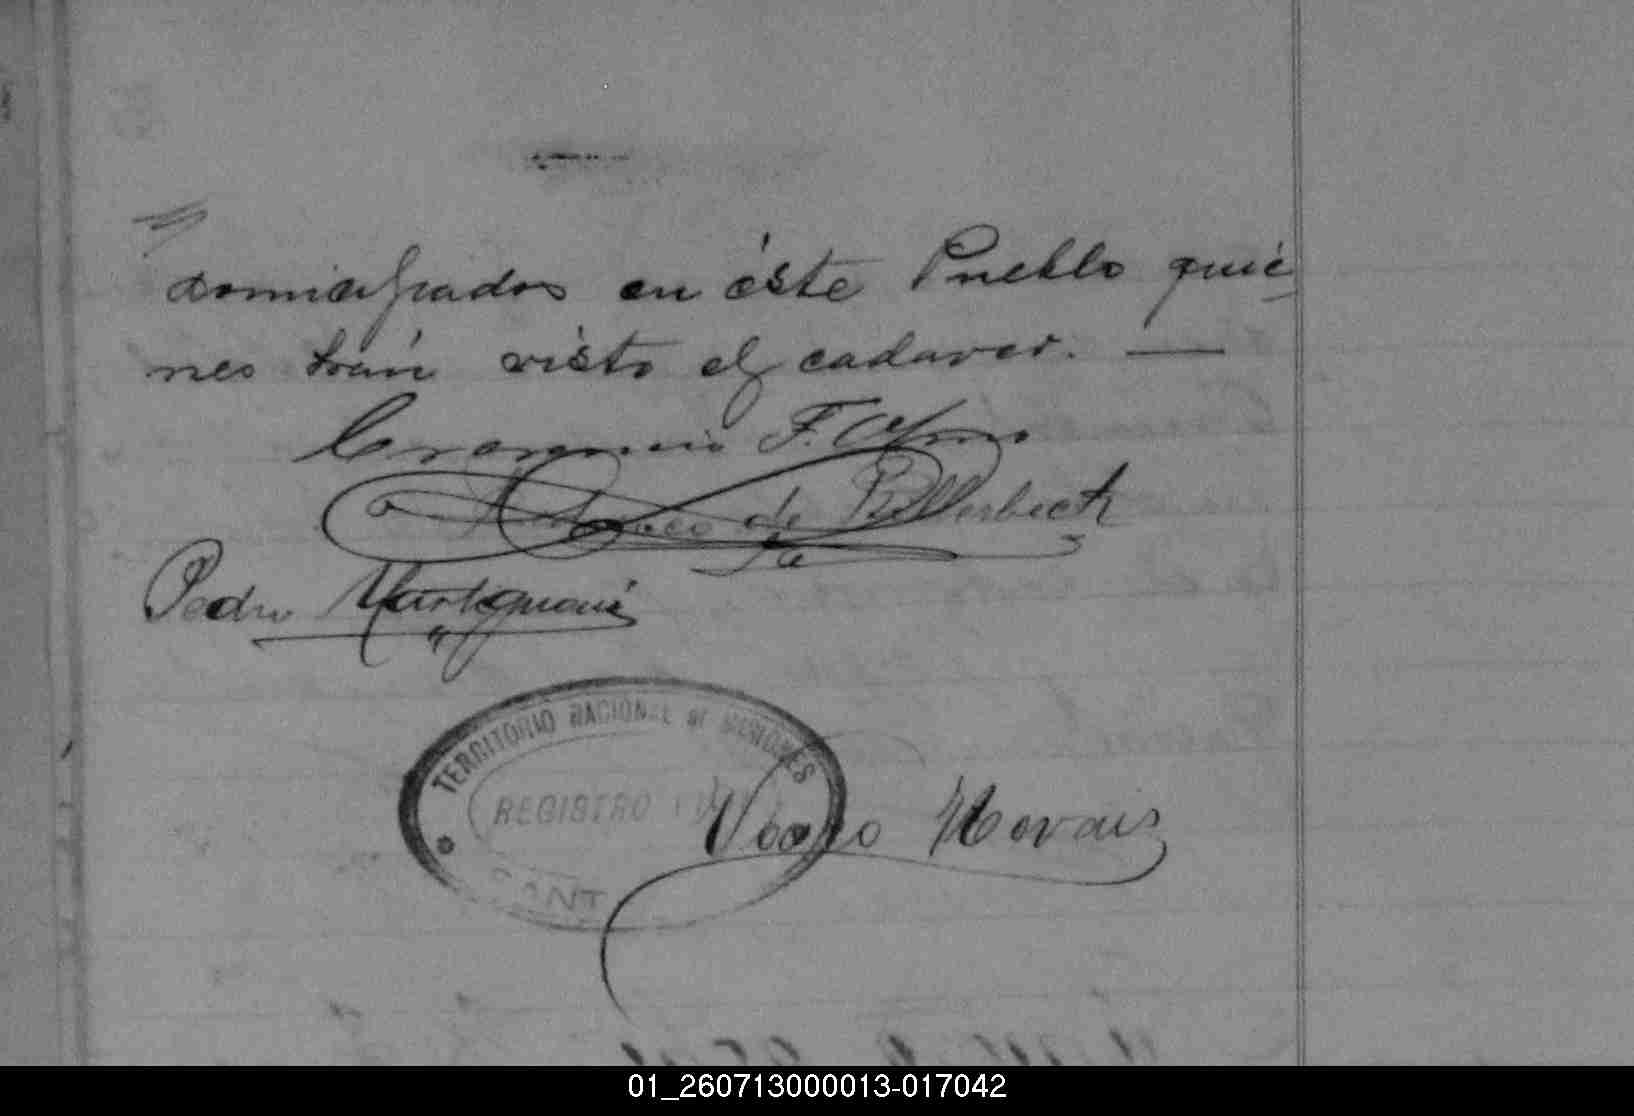 domiciliados en éste Pueblo quié-
nes hán visto el cadaver. —
F.
de Billerbeck
Pedro Martignoni
TERRITORIO NACIONAL DE MISIONES
REGISTRO
01_260713000013-017042